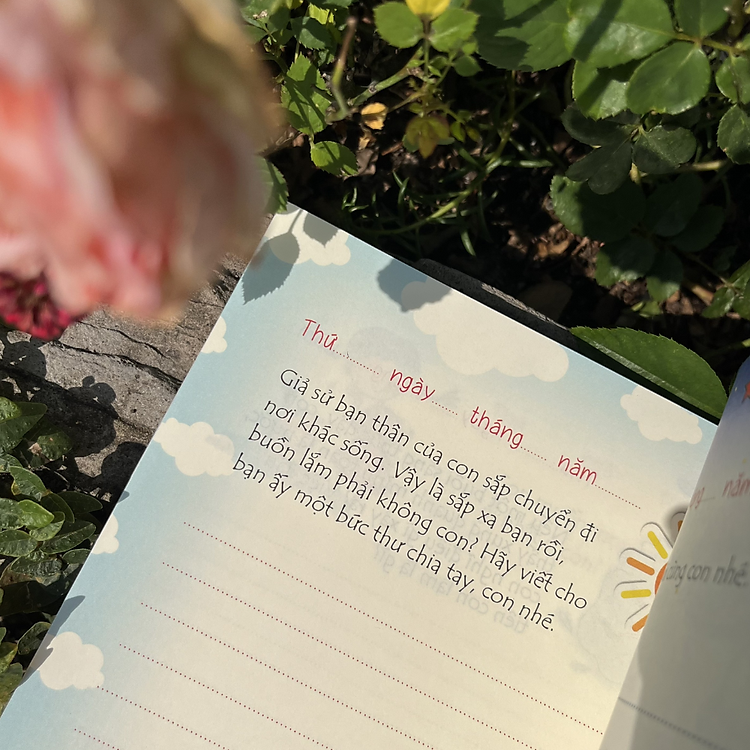 Thứ......... ngày...... tháng...... năm...........
Giả sử bạn thân của con sắp chuyển đi
nơi khác sống. Vậy là sắp xa bạn rồi,
buồn lắm phải không con? Hãy viết cho
bạn ấy một bức thư chia tay, con nhé.
năm
con nhé.